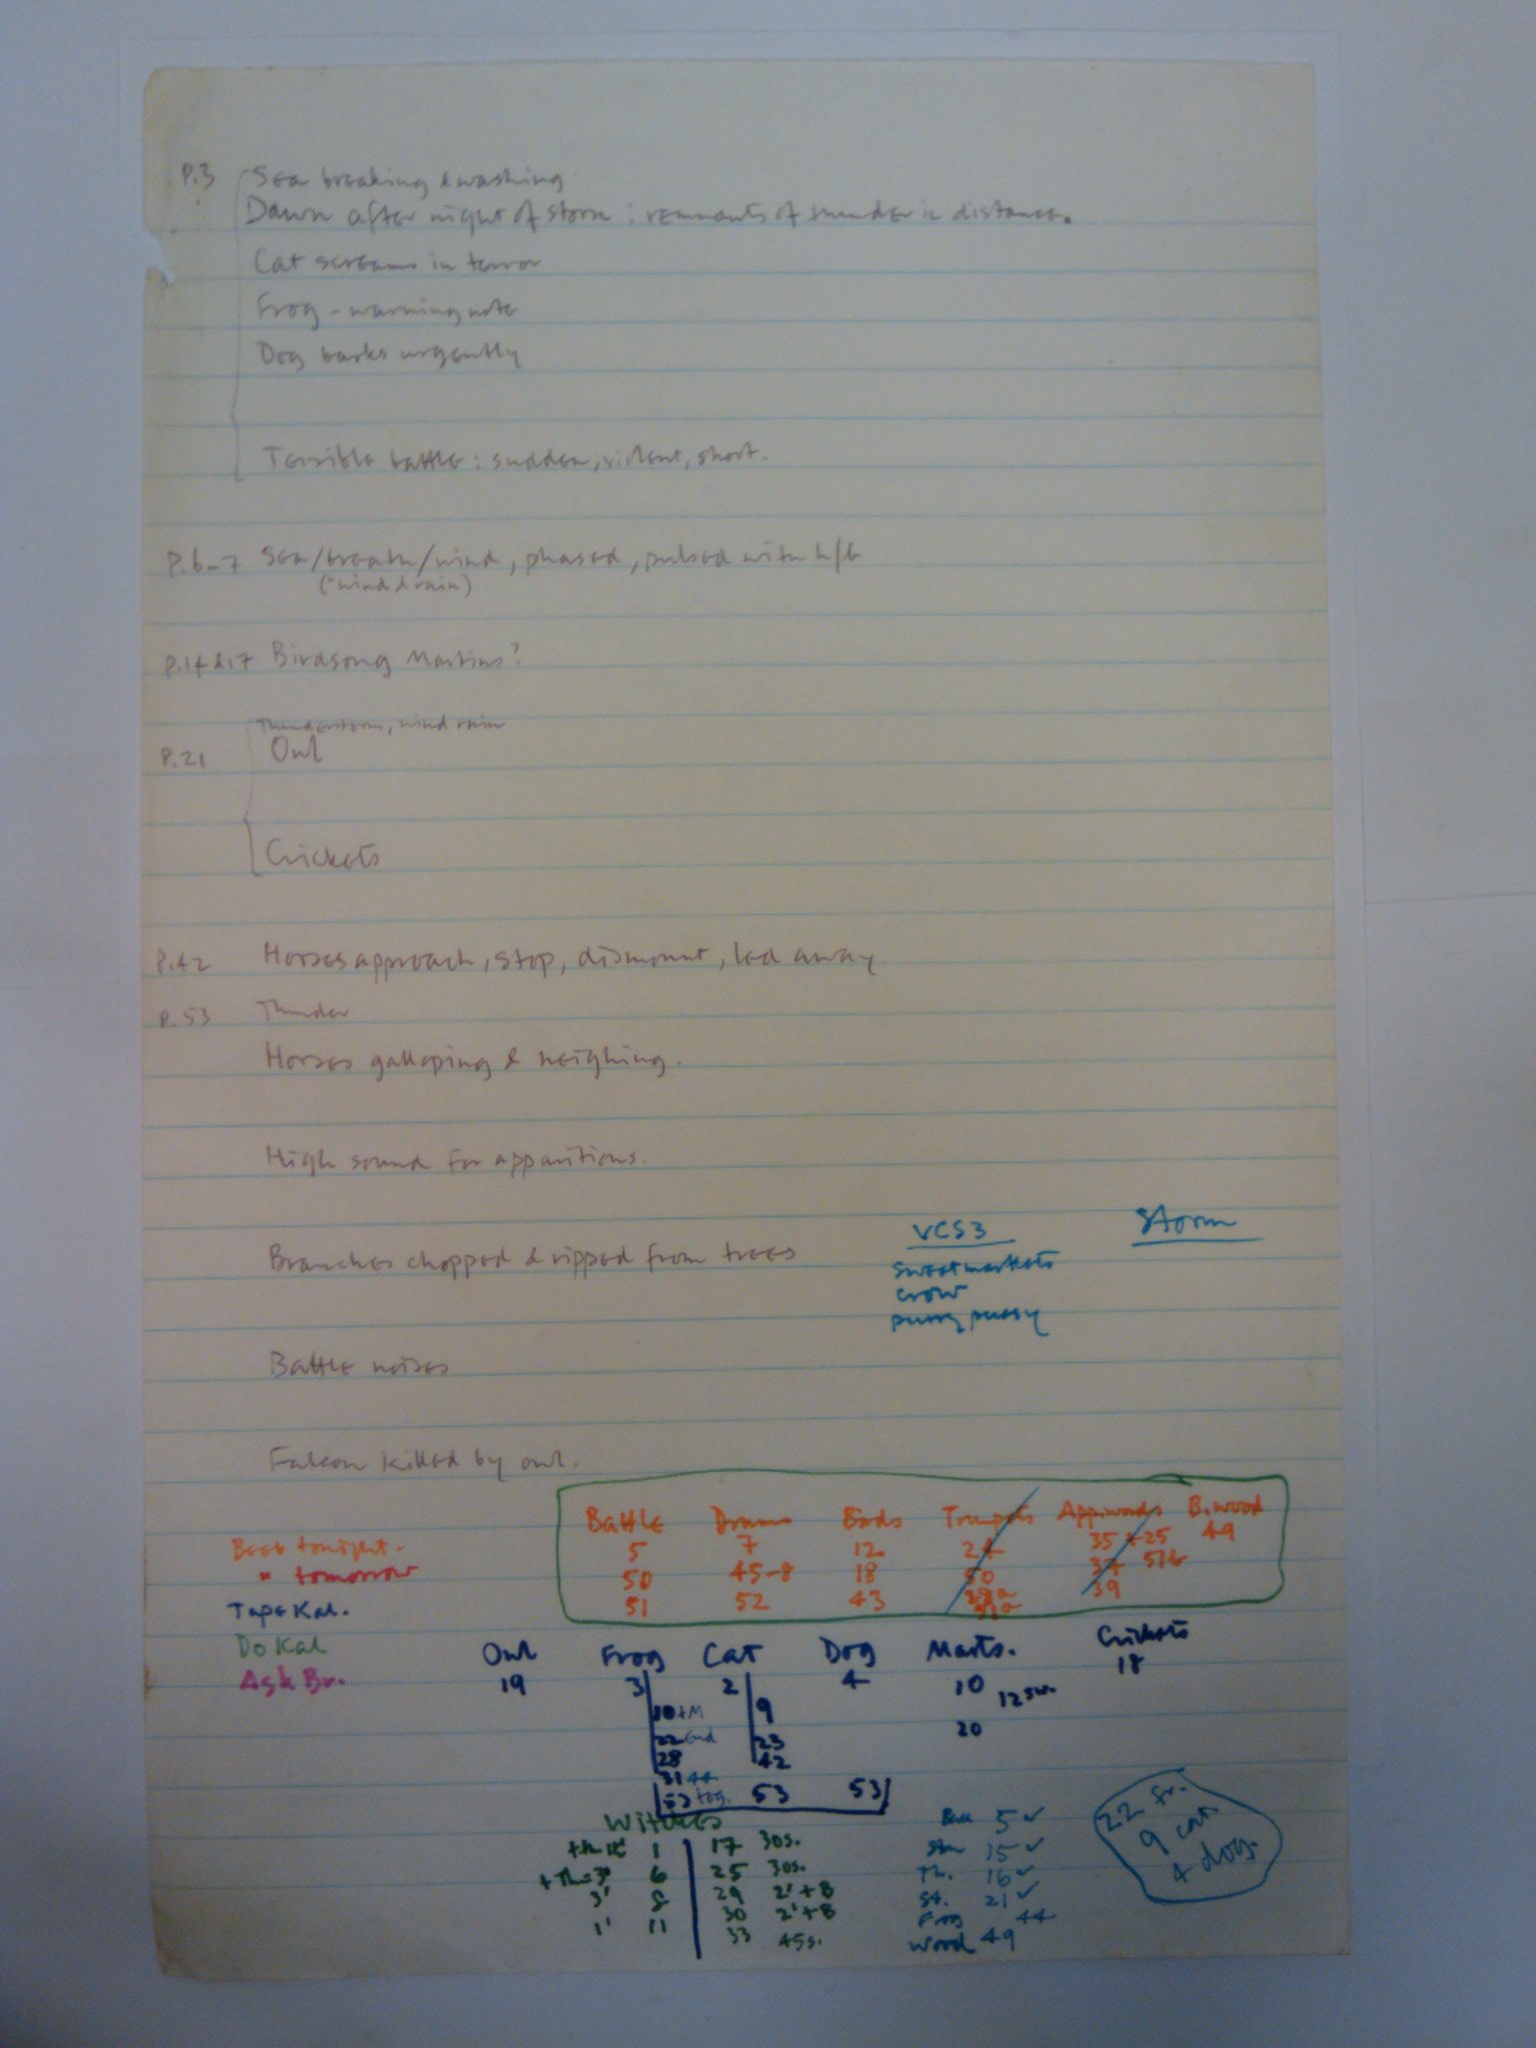 P.3 Sea breaking & washing
Dawn after night of storm : remnants of thunder in distance.
Cat screams in terror
Frog - warning note
Dog barks urgently
Terrible battle : sudden, violent, short.
P.6-7 Sea/breath/wind, phased, pulsed with h/b
(wind & rain)
P.14 & 17 Birdsong Martins?
Thunderstorm, wind rain
P.21 Owl
Crickets
P.42 Horses approach, stop, dismount, led away
P.53 Thunder
Horses galloping & neighing.
High sound for apparitions.
VCS3 Storm
Branches chopped & ripped from trees
crow
purry pussy
Battle noises
Falcon killed by owl.
Battle Drums Birds Trumpets B.wood
5 7 12 24 35 + 25 49
Beeb tonight.
50 45-8 18 50 37 51b
" tomorrow
51 52 43 39
Tape Kal.
Do Kal
Owl Frog Cat Dog Marts. Crickets
Ask Br.
19 3 2 4 10 18
10 + M 9
22 end 23 20
28 42
31 44
53 tog. 53 53
Witches
1 17 30s. 5 ✓
6 25 30s. 15 ✓
3' 8 29 2' + B Th. 16 ✓
30 2' + B St. 21 ✓
1' 11 Frog 44
33 45s. Wood 49
22 fr.
9 cat.
4 dog.